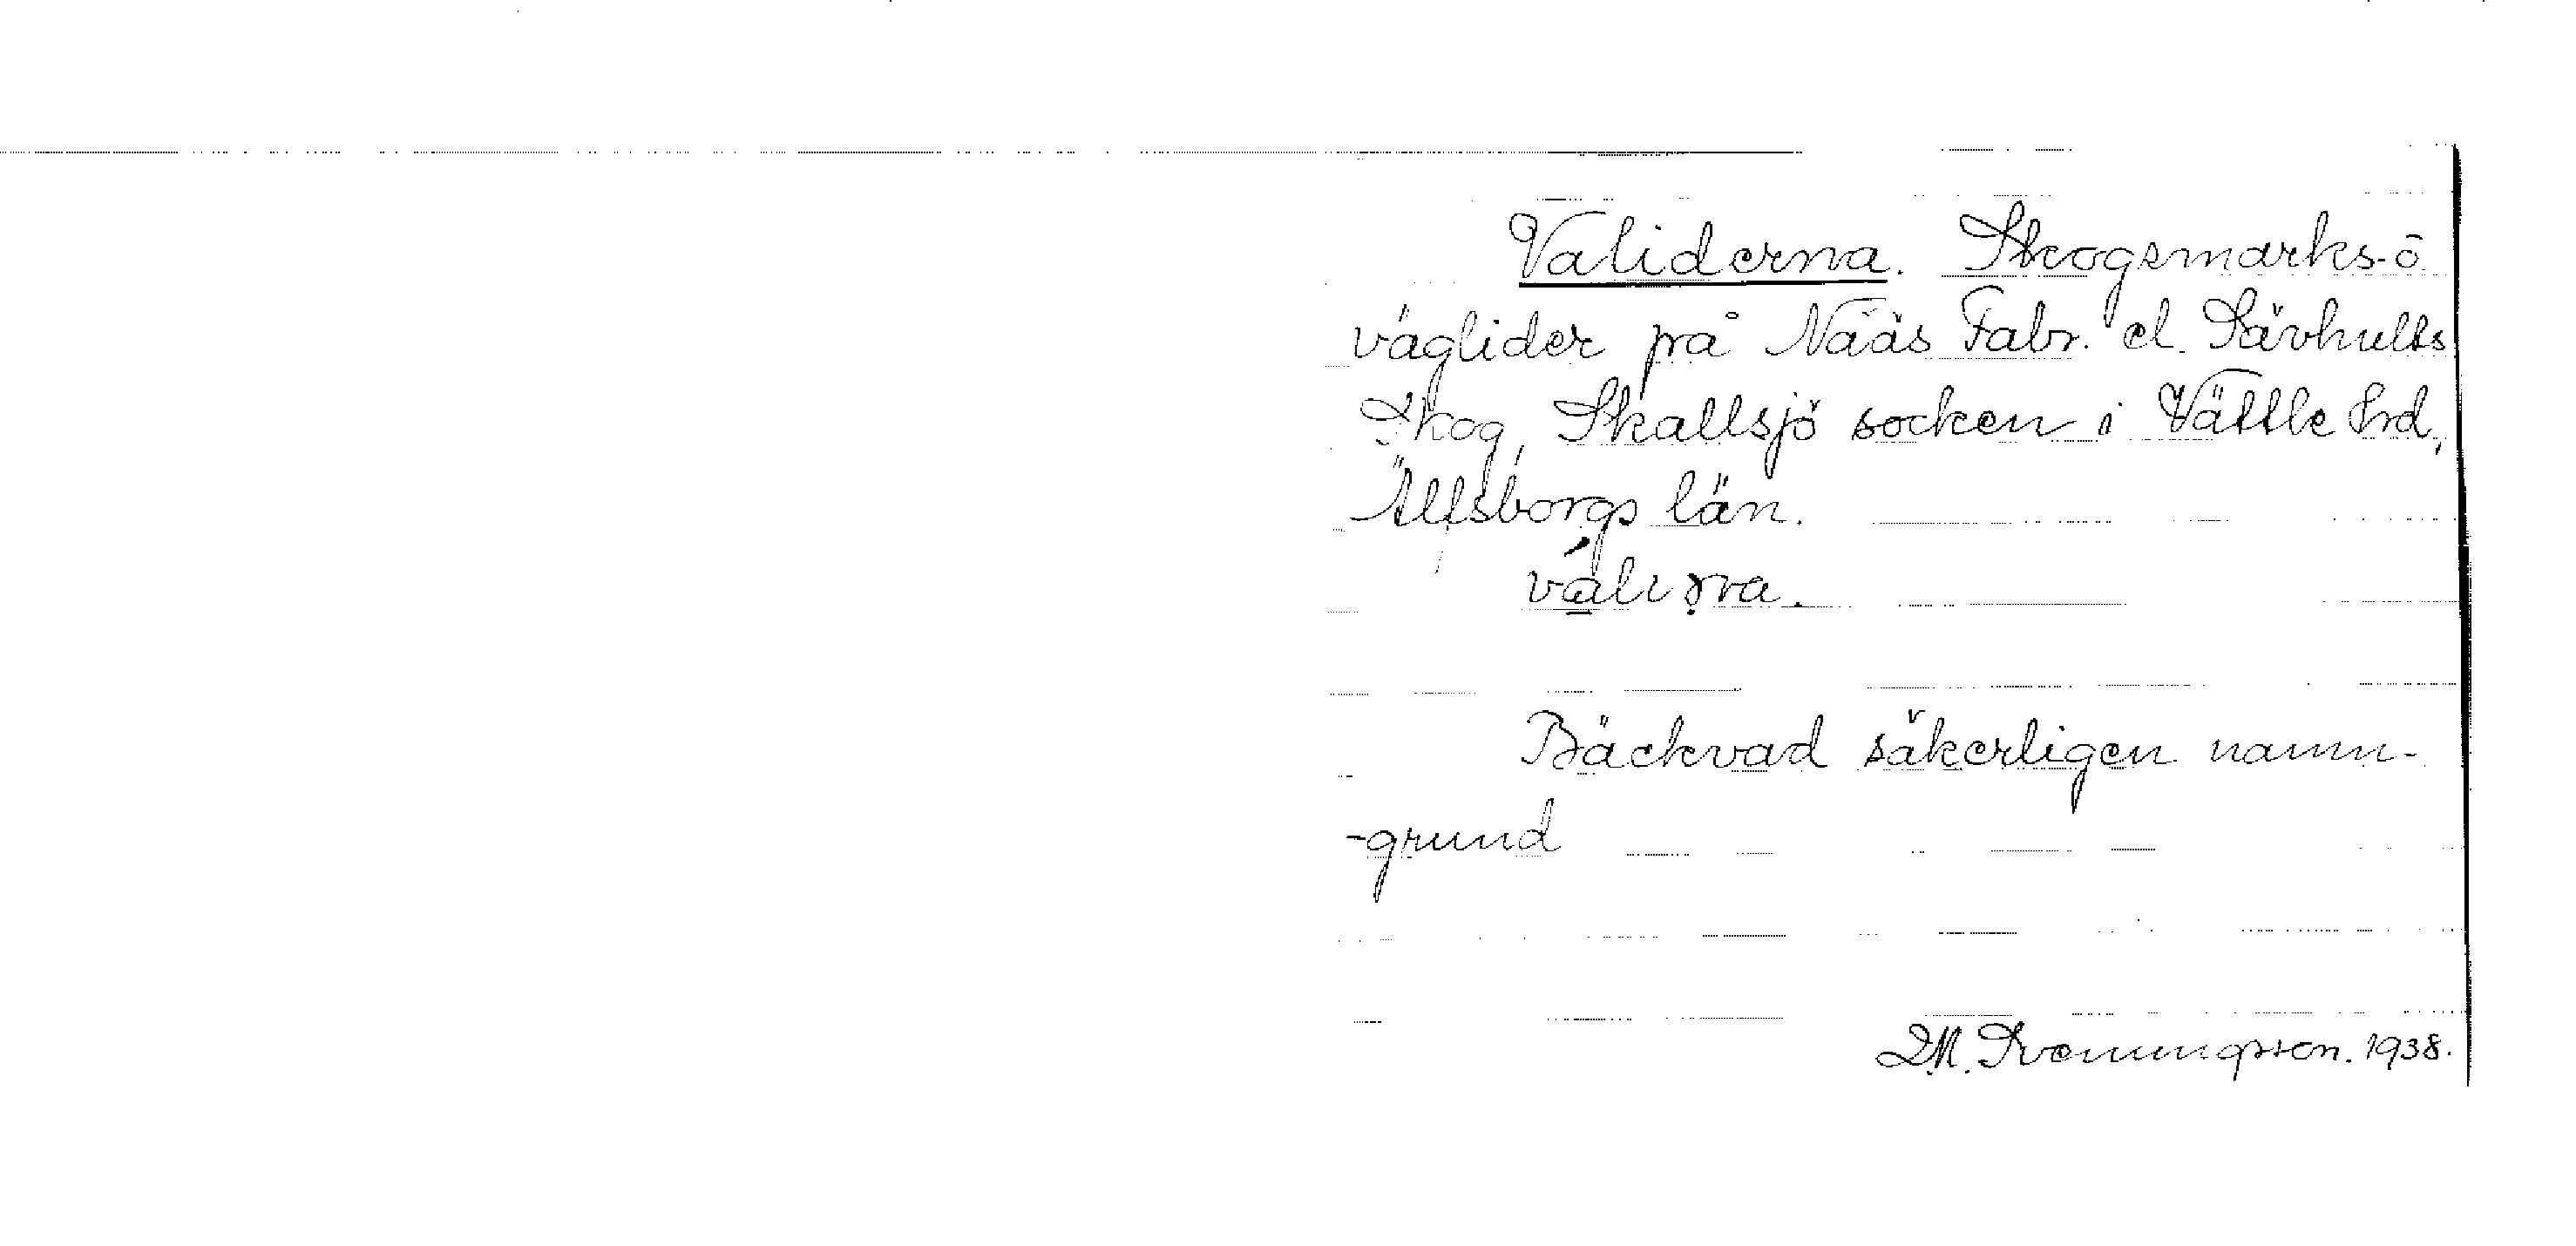 Validerna. Skogsmarks- o
väglider på Nääs Fabr. el. Sävhults
Skog, Skallsjö socken i Vättle hrd,
Älfsborgs län.
Bäckvad säkerligen namn-
-grund
D.M. Svenningsson. 1938.